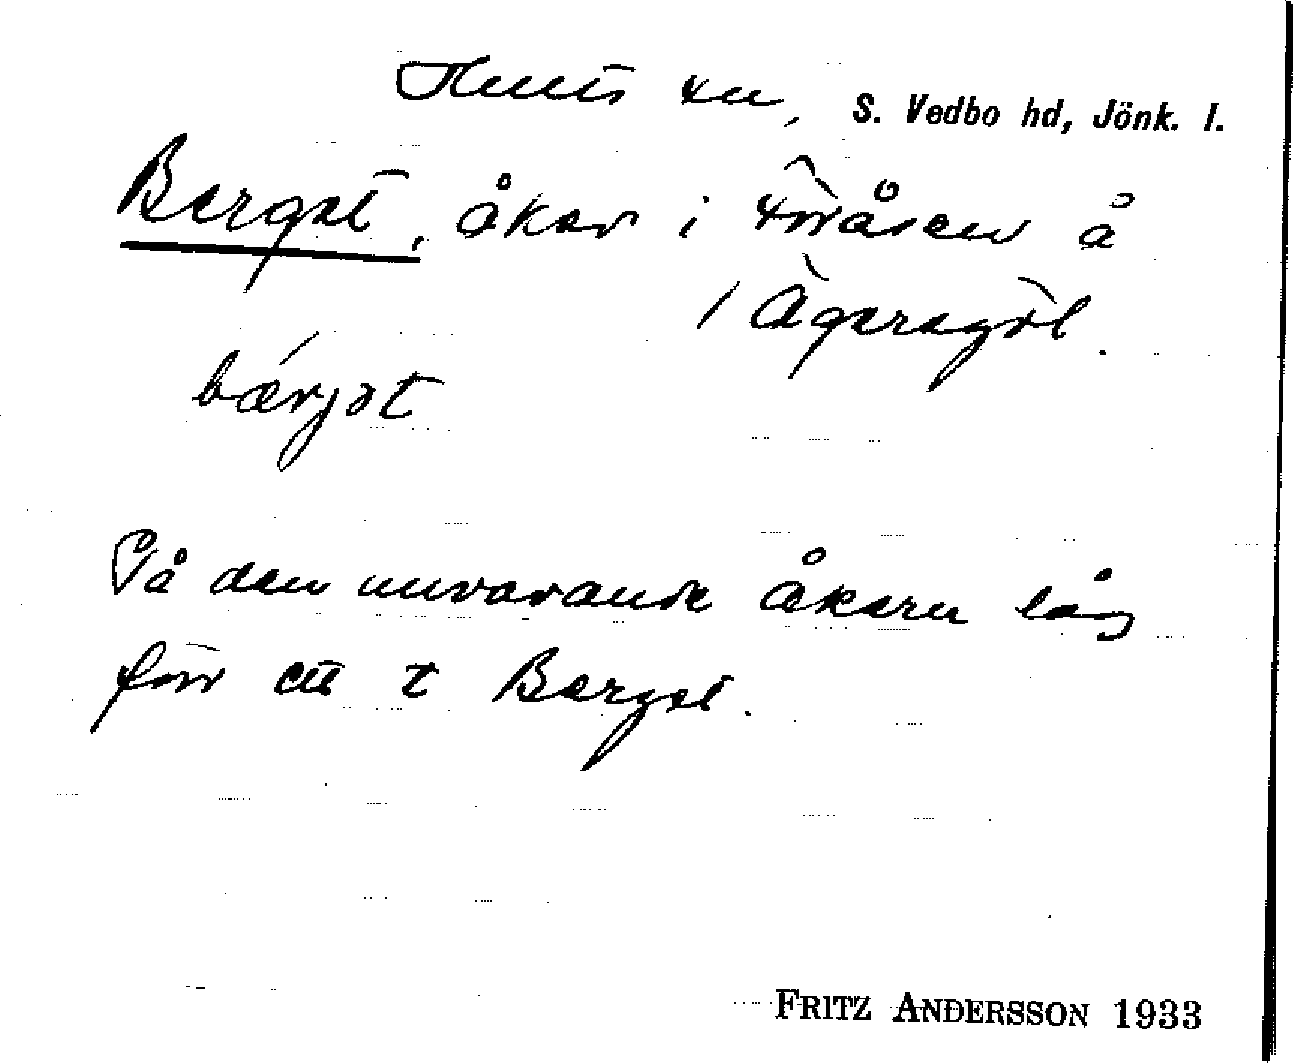 Hults sn, S. Vedbo hd, Jönk. l.
Berget, åker i Söråsen å
/ Ägersgöl.
bærjət
På den nuvarande åkern låg
förr ett t Berget.
FRITZ ANDERSSON 1933